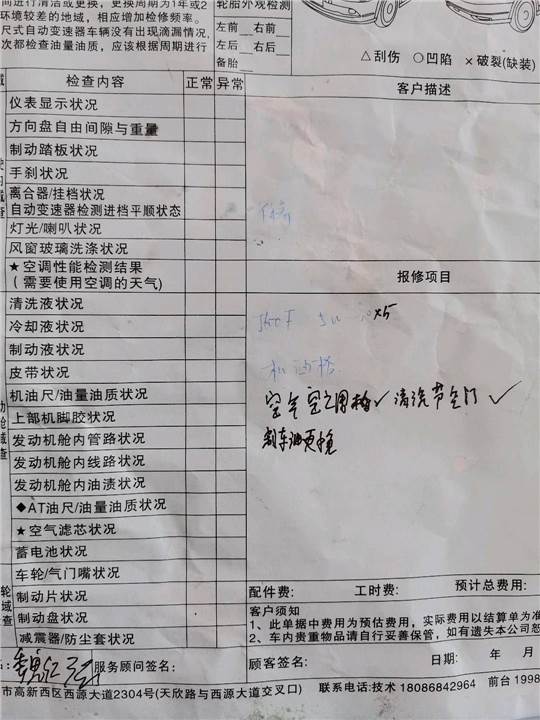 间进行清洁或更换，更换周期为1年或2
环境较差的地域，相应增加检修频率。
尺式自动变速器车辆没有出现滴漏情况，
次都检查油量油质，应该根据周期进行
轮胎外观检测
左前 右前
左后 右后
备胎
△刮伤 ○凹陷 ×破裂(缺装)
检查内容 正常 异常 客户描述
仪表显示状况
方向盘自由间隙与重量
制动踏板状况
手刹状况
离合器/挂档状况
自动变速器检测进档平顺状态
灯光/喇叭状况
风窗玻璃洗涤状况
★空调性能检测结果
(需要使用空调的天气)
报修项目
清洗液状况
冷却液状况
x5
制动液状况
皮带状况
机油格
机油尺/油量油质状况
空气 空调格✓ 清洗节气门✓
上部机脚胶状况
刹车油更换
发动机舱内管路状况
发动机舱内线路状况
发动机舱内油渍状况
◆AT油尺/油量油质状况
★空气滤芯状况
蓄电池状况
车轮/气门嘴状况
制动片状况
制动盘状况
减震器/防尘套状况
配件费: 工时费: 预计总费用:
客户须知
1、此单据中费用为预估费用，实际费用以结算单为准
2、车内贵重物品请自行妥善保管，如有遗失本公司恕
服务顾问签名: 顾客签名: 日期: 年 月
市高新西区西源大道2304号(天欣路与西源大道交叉口) 联系电话:技术 18086842964 前台 1998